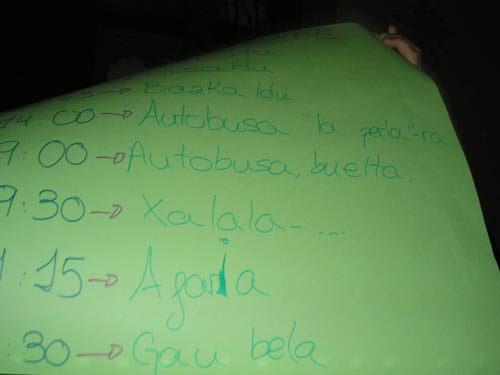 Bazkaldu
14:00 → Autobusa "la perla"-ra
9:00 → Autobusa, buelta.
9:30 → Xalala-...
:15 → Afaria
:30 → Gau bela